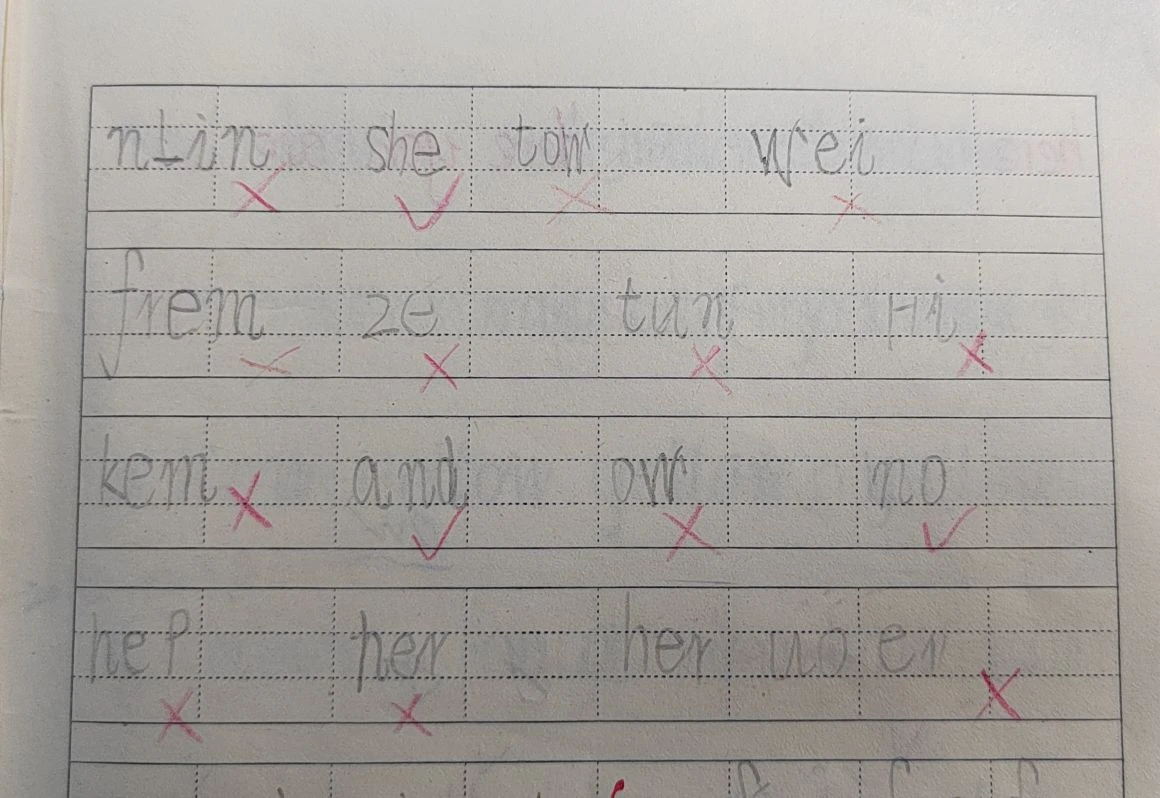 she tow wei
frem ze tun Hi
kem and ow no
hef her her uo er